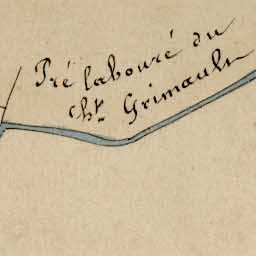 Pré labouré du
Cht Grimault